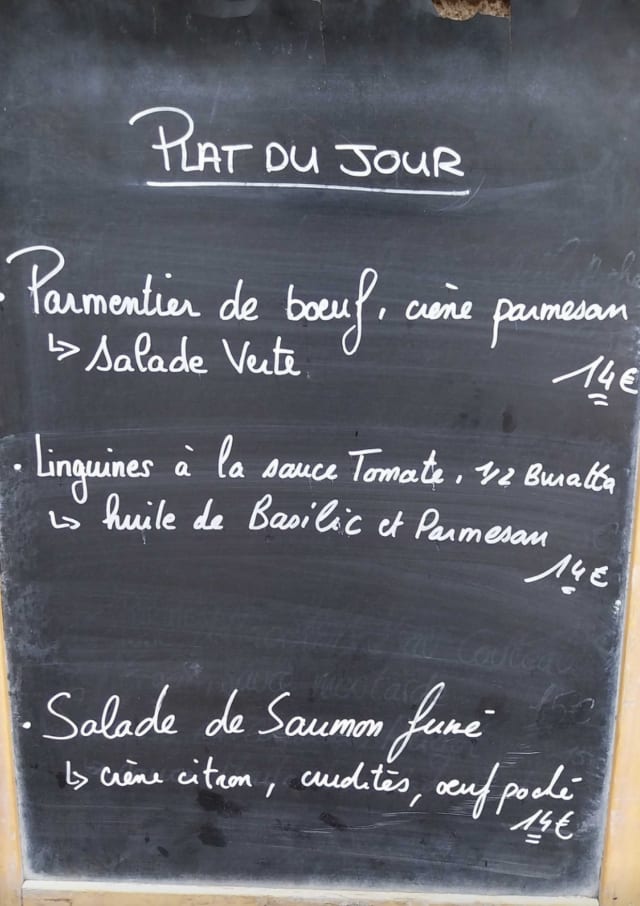 PLAT DU JOUR
. Parmentier de boeuf, crème parmesan
↳ Salade Verte
14€
. Linguines à la sauce Tomate, 1/2 Buratta
↳ huile de Basilic et Parmesan
14€
. Salade de Saumon fumé
↳ crème citron, crudités, œuf poché
14€